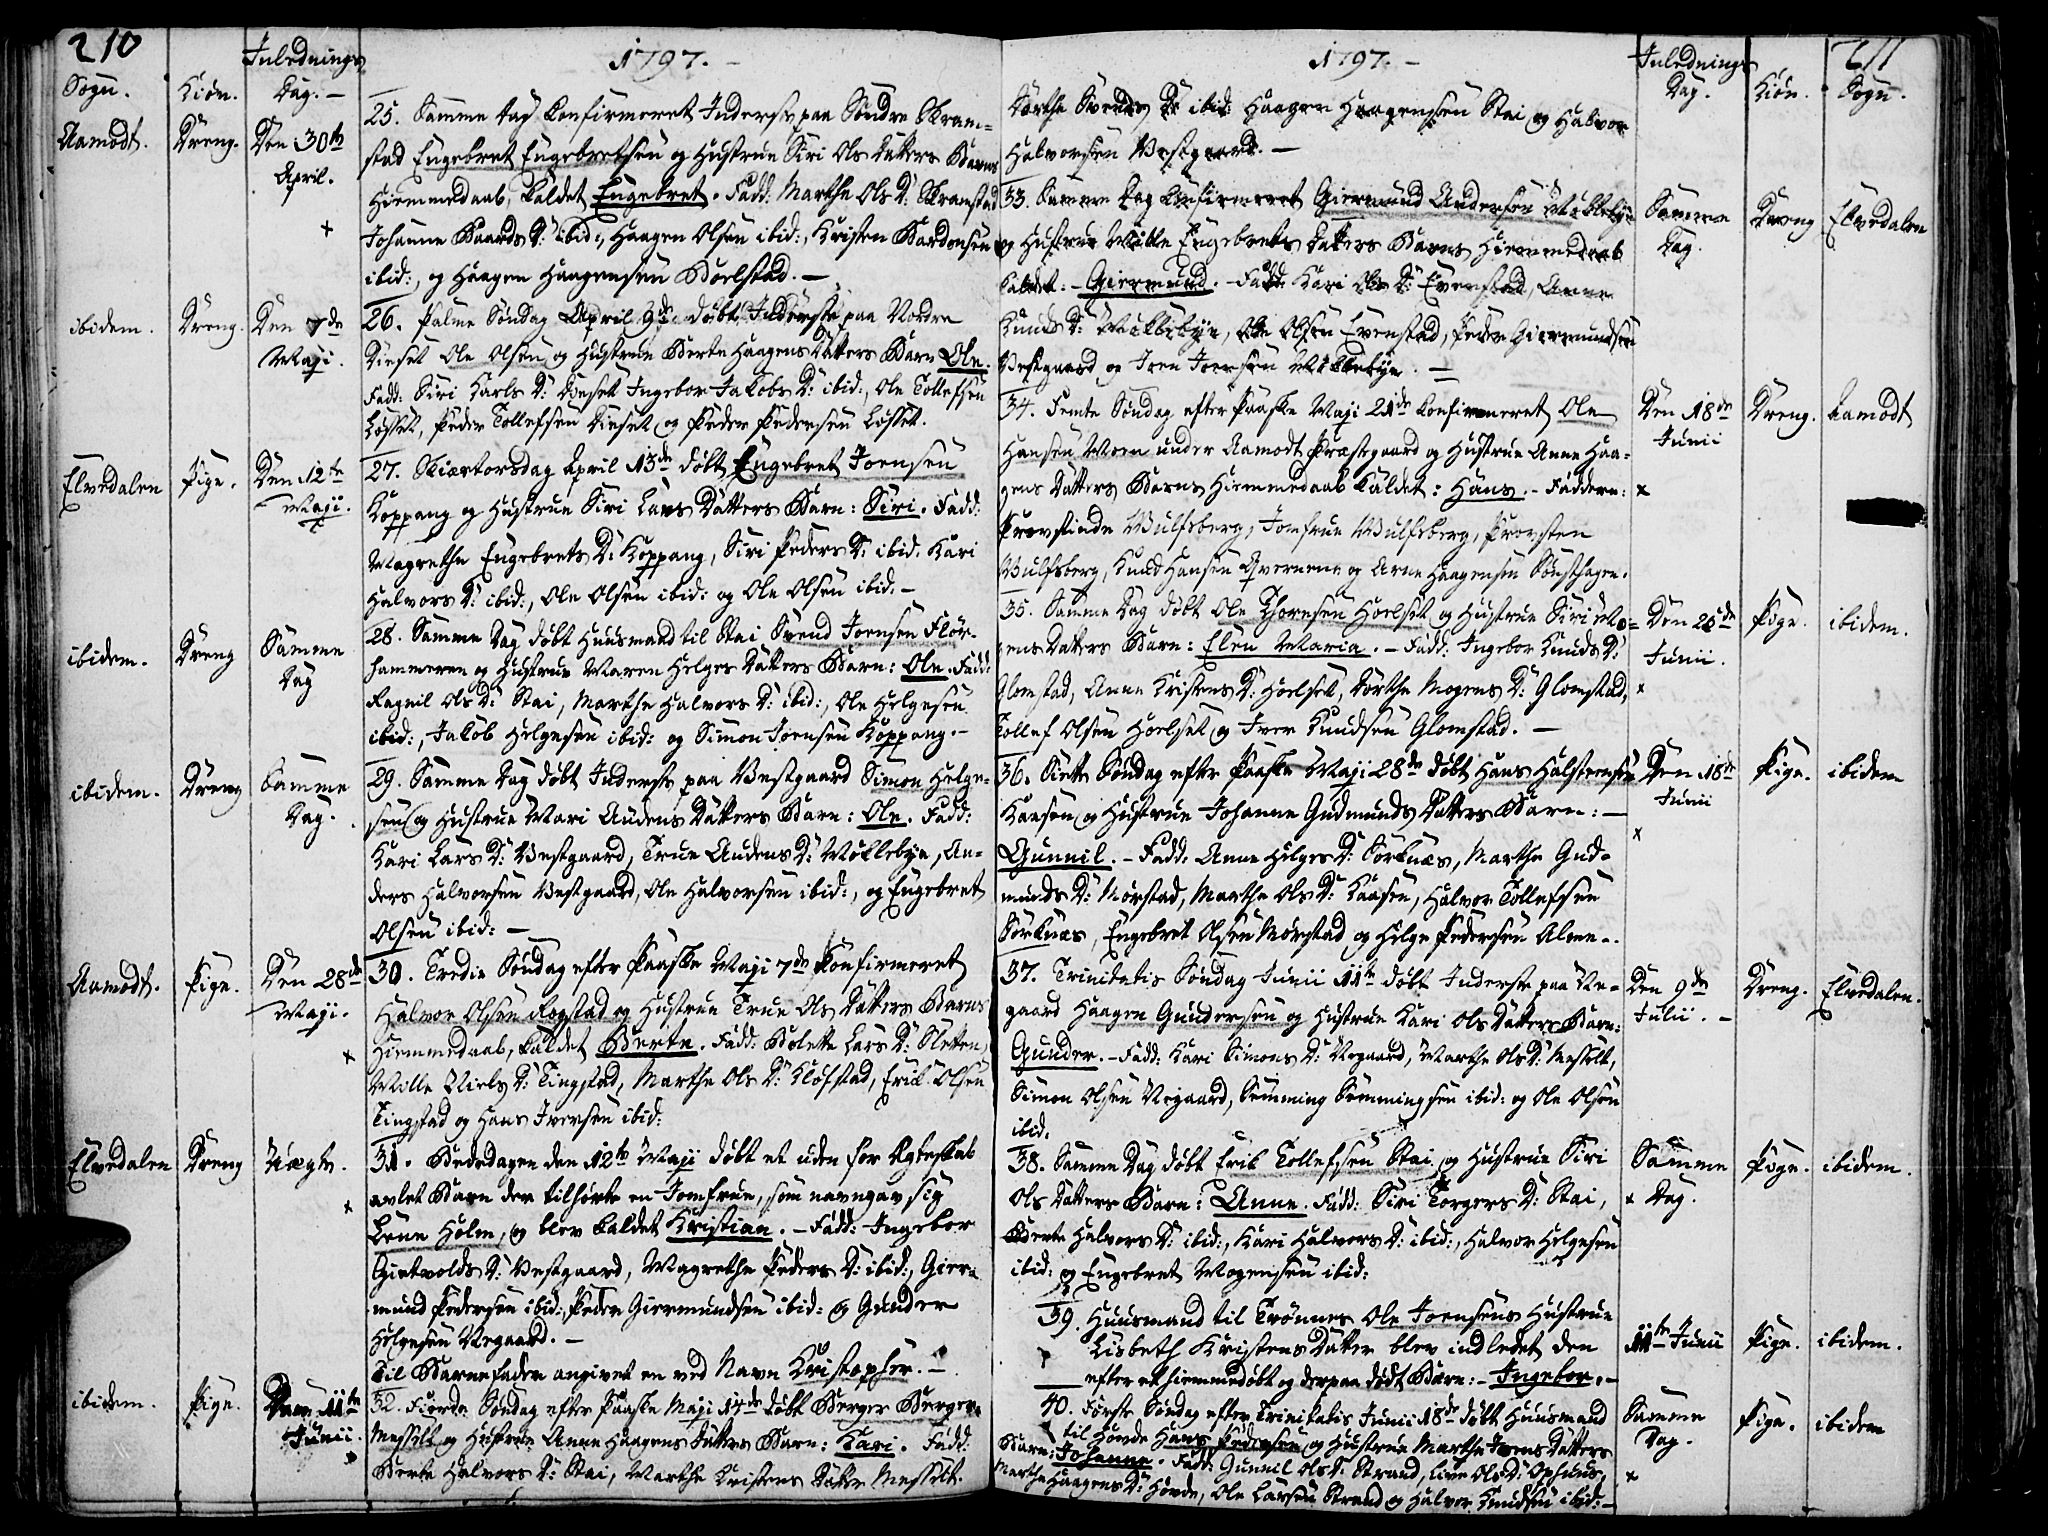 210
Sogn.
Kiön.
Inlednings
Dag. —
1797. —
Aamodt.
Dreng.
Den 30te
April.
25. Samme Dag Confirmeret Inderst paa Söndre Skram=
stad Engebret Engebretsen og Hustrue Siri Ols Datters Barns
Hiemmedaab, kaldet Engebret. Fadd: Marthe Ols D: Skramstad
Johanne Baards D: ibid:, Haagen Olsen ibid:, Kristen Bardonsen
ibid:, og Haagen Haagensen Bolstad. —
ibidem.
Dreng.
Den 7de
Maji.
26. Palme Söndag April 9de döbt Inderste paa Nordre
Deset Ole Olsen og Hustrue Berte Haagens Datters Barn Ole.
Fadd: Siri Karls D: Deset Ingebor Jakobs D: ibid:, Ole Tollefsen
Lösset, Peder Tollefsen Deset og Peder Pedersen Lösset.
Elvedalen
Pige.
Den 12te
Maji.
27. Skiærtorsdag April 13de döbt Engebret Joensen
Koppang og Hustrue Siri Lars Datters Barn: Siri. Fadd:
Magrethe Engebrets D: Koppang, Siri Peders D: ibid: Kari
Halvors D: ibid:, Ole Olsen ibid: og Ole Olsen ibid: —
ibidem.
Dreng
Samme
Dag
28. Samme Dag döbt Huusmand til Stai Svend Joensen Flör-
hammeren og Hustrue Maren Helges Datters Barn: Ole. Fadd:
Ragnil Ols D: Stai, Marthe Halvors D: ibid:, Ole Helgesen
ibid:, Jakob Helgesen ibid: og Simon Joensen Koppang. —
ibidem.
Dreng
Samme
Dag.
29. Samme Dag döbt Inderst paa Vestgaard Simon Helge-
sen og Hustrue Mari Audens Datters Barn: Ole. Fadd:
Kari Lars D: Vestgaard, True Audens D: Möklebye, An=
ders Halvorsen Vestgaard, Ole Halvorsen ibid:, og Engebret
Olsen ibid: —
Aamodt.
Pige.
Den 28de
Maji.
30. Tredie Söndag efter Paaske Maji 7de Konfirmeret
Halvor Olsen Rogstad og Hustrue True Ols Datters Barns
Hiemmedaab, kaldet Berte. Fadd: Bolette Lars D: Sletten,
Mille Niels D: Tingstad, Marthe Ols D: Klöfstad, Erik Olsen
Tingstad og Hans Iversen ibid:
Elvedalen
Dreng
Uægte.
31. Bededagen den 12te Maji döbt et uden for Ægteskab
avlet Barn der tilhörte en Jomfrue, som navngav sig
Lene Holm, og blev kaldet Kristian. — Fadd: Ingebor
Gietvolds D: Vestgaard, Magrethe Peders D: ibid:, Gier=
mund Pedersen ibid:, Peder Giermundsen ibid: og Gunder
Helgesen Negaard. —
Til Barnefader angivet en ved Navn Kristopher. —
ibidem.
Pige.
Den 11te
Junii.
32. Fierde Söndag efter Paaske Maji 14de döbt Berger Berger-
Messelt og Hustrue Anne Haagens Datters Barn: Kari. Fadd:
Berte Halvors D: Stai, Marthe Cristens Datter Messelt.
1797. —
Inlednings
Dag.
Kiön.
211
Sogn.
Dorthe Svends D: ibid: Haagen Haagensen Stai og Halvor
Halvorsen Vestgaard. —
33. Samme Dag Confirmeret Giermund Andersen Möklebye
og Hustrue Mille Engebrets Datters Barns Hiemmedaab
Kaldet: — Giermund. — Fadd: Kari Ols D: Evenstad, Anne
Knuds D: Möklebye, Ole Olsen Evenstad, Peder Giermundsen
Vestgaard og Joen Joensen Möklebye. —
Samme
Dag.
Dreng
Elvedalen
34. Femte Söndag efter Paaske Maji 21de Confirmeret Ole
Hansen Moen under Aamodt Præstegaard og Hustrue Anne Haa=
gens Datters Barns Hiemmedaab kaldet: Hans. — Faddere:
Provstinde Wulfsberg, Jomfrue Wulfsberg, Provsten
Wulfsberg, Knud Hansen Qvernene og Arne Haagensen Sönsthagen.
Den 18de
Junii
Dreng.
Aamodt
35. Samme Dag döbt Ole Thorersen Hoelset og Hustrue Siri Mo=
gens Datters Barn: Elen Maria. — Fadd: Ingebor Knuds D:
Glomstad, Anne Kristens D: Hoelset, Dorthe Mogens D: Glomstad,
Tollef Olsen Hoelset og Iver Knudsen Glomstad. —
Den 25de
Junii.
Pige.
ibidem.
36. Siette Söndag efter Paaske Maji 28de döbt Hans Halsteensen
Kaasen og Hustrue Johanne Gudmunds Datters Barn: —
Gunnil. — Fadd: Anne Helges D: Sörknæs, Marthe Gud=
munds D: Mörstad, Marthe Ols D: Kaasen, Halvor Tollefsen
Sörknæs, Engebret Olsen Mörstad og Helge Pedersen Alme —
Den 18de
Junii
Pige.
ibidem
37. Trinitatis Söndag Junii 11te döbt Inderste paa Ne-
gaard Haagen Gundersen og Hustrue Kari Ols Datters Barn:
Gunder. — Fadd: Kari Simons D: Negaard, Marthe Ols D: Messelt,
Simon Olsen Negaard, Semming Semmingsen ibid: og Ole Olsen
ibid:
Den 9de
Julii. —
Dreng.
Elvedalen.
38. Samme Dag döbt Erik Tollefsen Stai og Hustrue Siri
Ols Datters Barn: Anne. Fadd: Siri Torgers D: Stai,
Berte Halvors D: ibid:, Kari Halvors D: ibid:, Halvor Helgesen
ibid: og Engebret Mogensen ibid:
Samme
Dag.
Pige.
ibidem.
39. Huusmand til Trönnes Ole Joensens Hustrue
Lisbeth Kristens Datter blev indledet den
efter et hiemmedöbt og derpaa dödt Barn: — Ingebor. —
11te Junii
Pige.
ibidem.
40. Förste Söndag efter Trinitatis Junii 18de döbt Huusmand
til Hovde Hans Pedersen og Hustrue Marthe Joens Datters
Barn: Johanne. Fadd: Gunnil Ols D: Strand, Live Ols D: Ophuus,
Marthe Haagens D: Hovde, Ole Larsen Strand og Halvor Knudsen ibid: —
Samme
Dag.
Pige.
ibidem